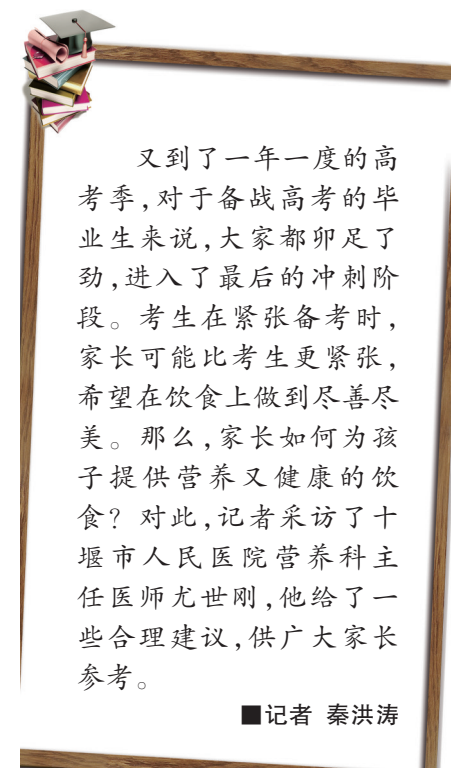 又到了一年一度的高
考季,对于备战高考的毕
业生来说,大家都卯足了
劲,进入了最后的冲刺阶
段。考生在紧张备考时,
家长可能比考生更紧张,
希望在饮食上做到尽善尽
美。那么,家长如何为孩
子提供营养又健康的饮
食？对此,记者采访了十
堰市人民医院营养科主
任医师尤世刚,他给了一
些合理建议,供广大家长
参考。
■记者 秦洪涛